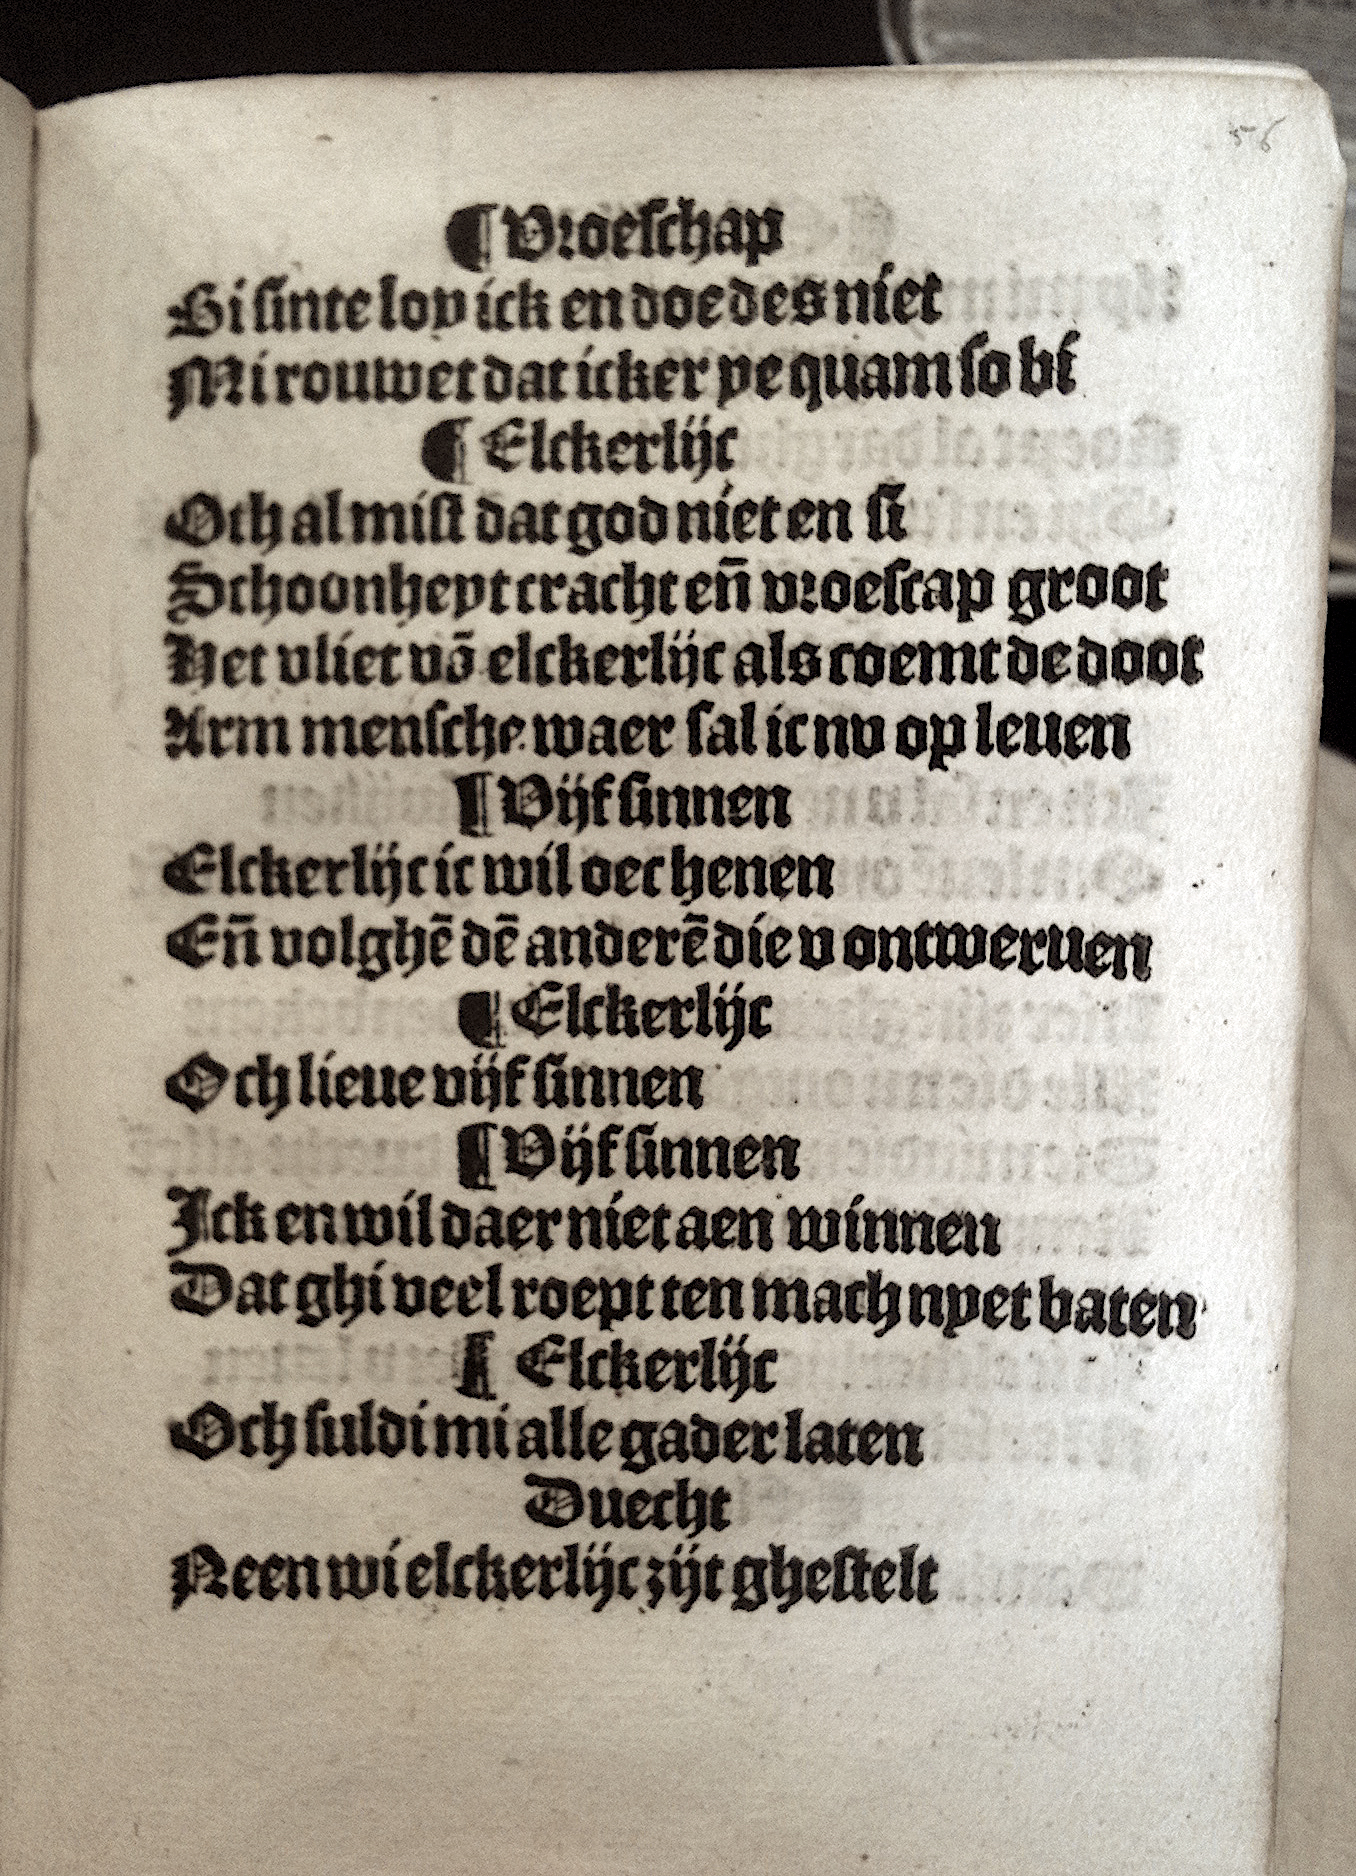 56
¶ Vroeschap
Bi sinte loy ick en doe des niet
Mi rouwet dat icker ye quam so bi
¶ Elckerlijc
Och al mist dat god niet en si
Schoonheyt cracht eñ vroescap groot
Het vliet vō elckerlijc als coemt de doot
Arm mensche waer sal ic nv op leuen
¶ Vijf sinnen
Elckerlijc ic wil oec henen
Eñ volghē dē anderē die v ontweruen
¶ Elckerlijc
Och lieue vijf sinnen
¶ Vijf sinnen
Ick en wil daer niet aen winnen
Dat ghi veel roept ten mach nyet baten
¶ Elckerlijc
Och suldi mi alle gader laten
Duecht
Neen wi elckerlijc zijt ghestelt